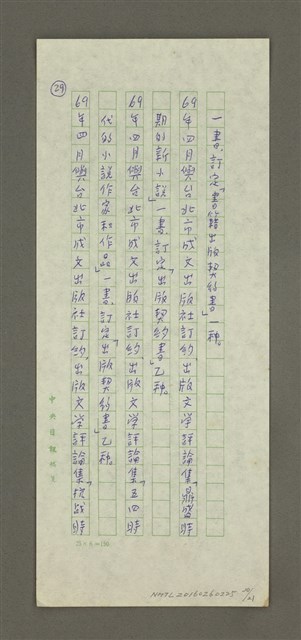 29
一書，訂定「書籍出版契約書」一種。
69年四月與台北市成文出版社訂約出版文学評論集「鼎盛時
期的新小說」一書，訂定出版契約書乙種。
69年四月與台北市成文出版社訂約出版文学評論集「五四時
代的小說作家和作品」一書，訂定出版契約書乙種。
69年四月與台北市成文出版社訂約，出版文学評論集「抗战時
NMTL20160260225